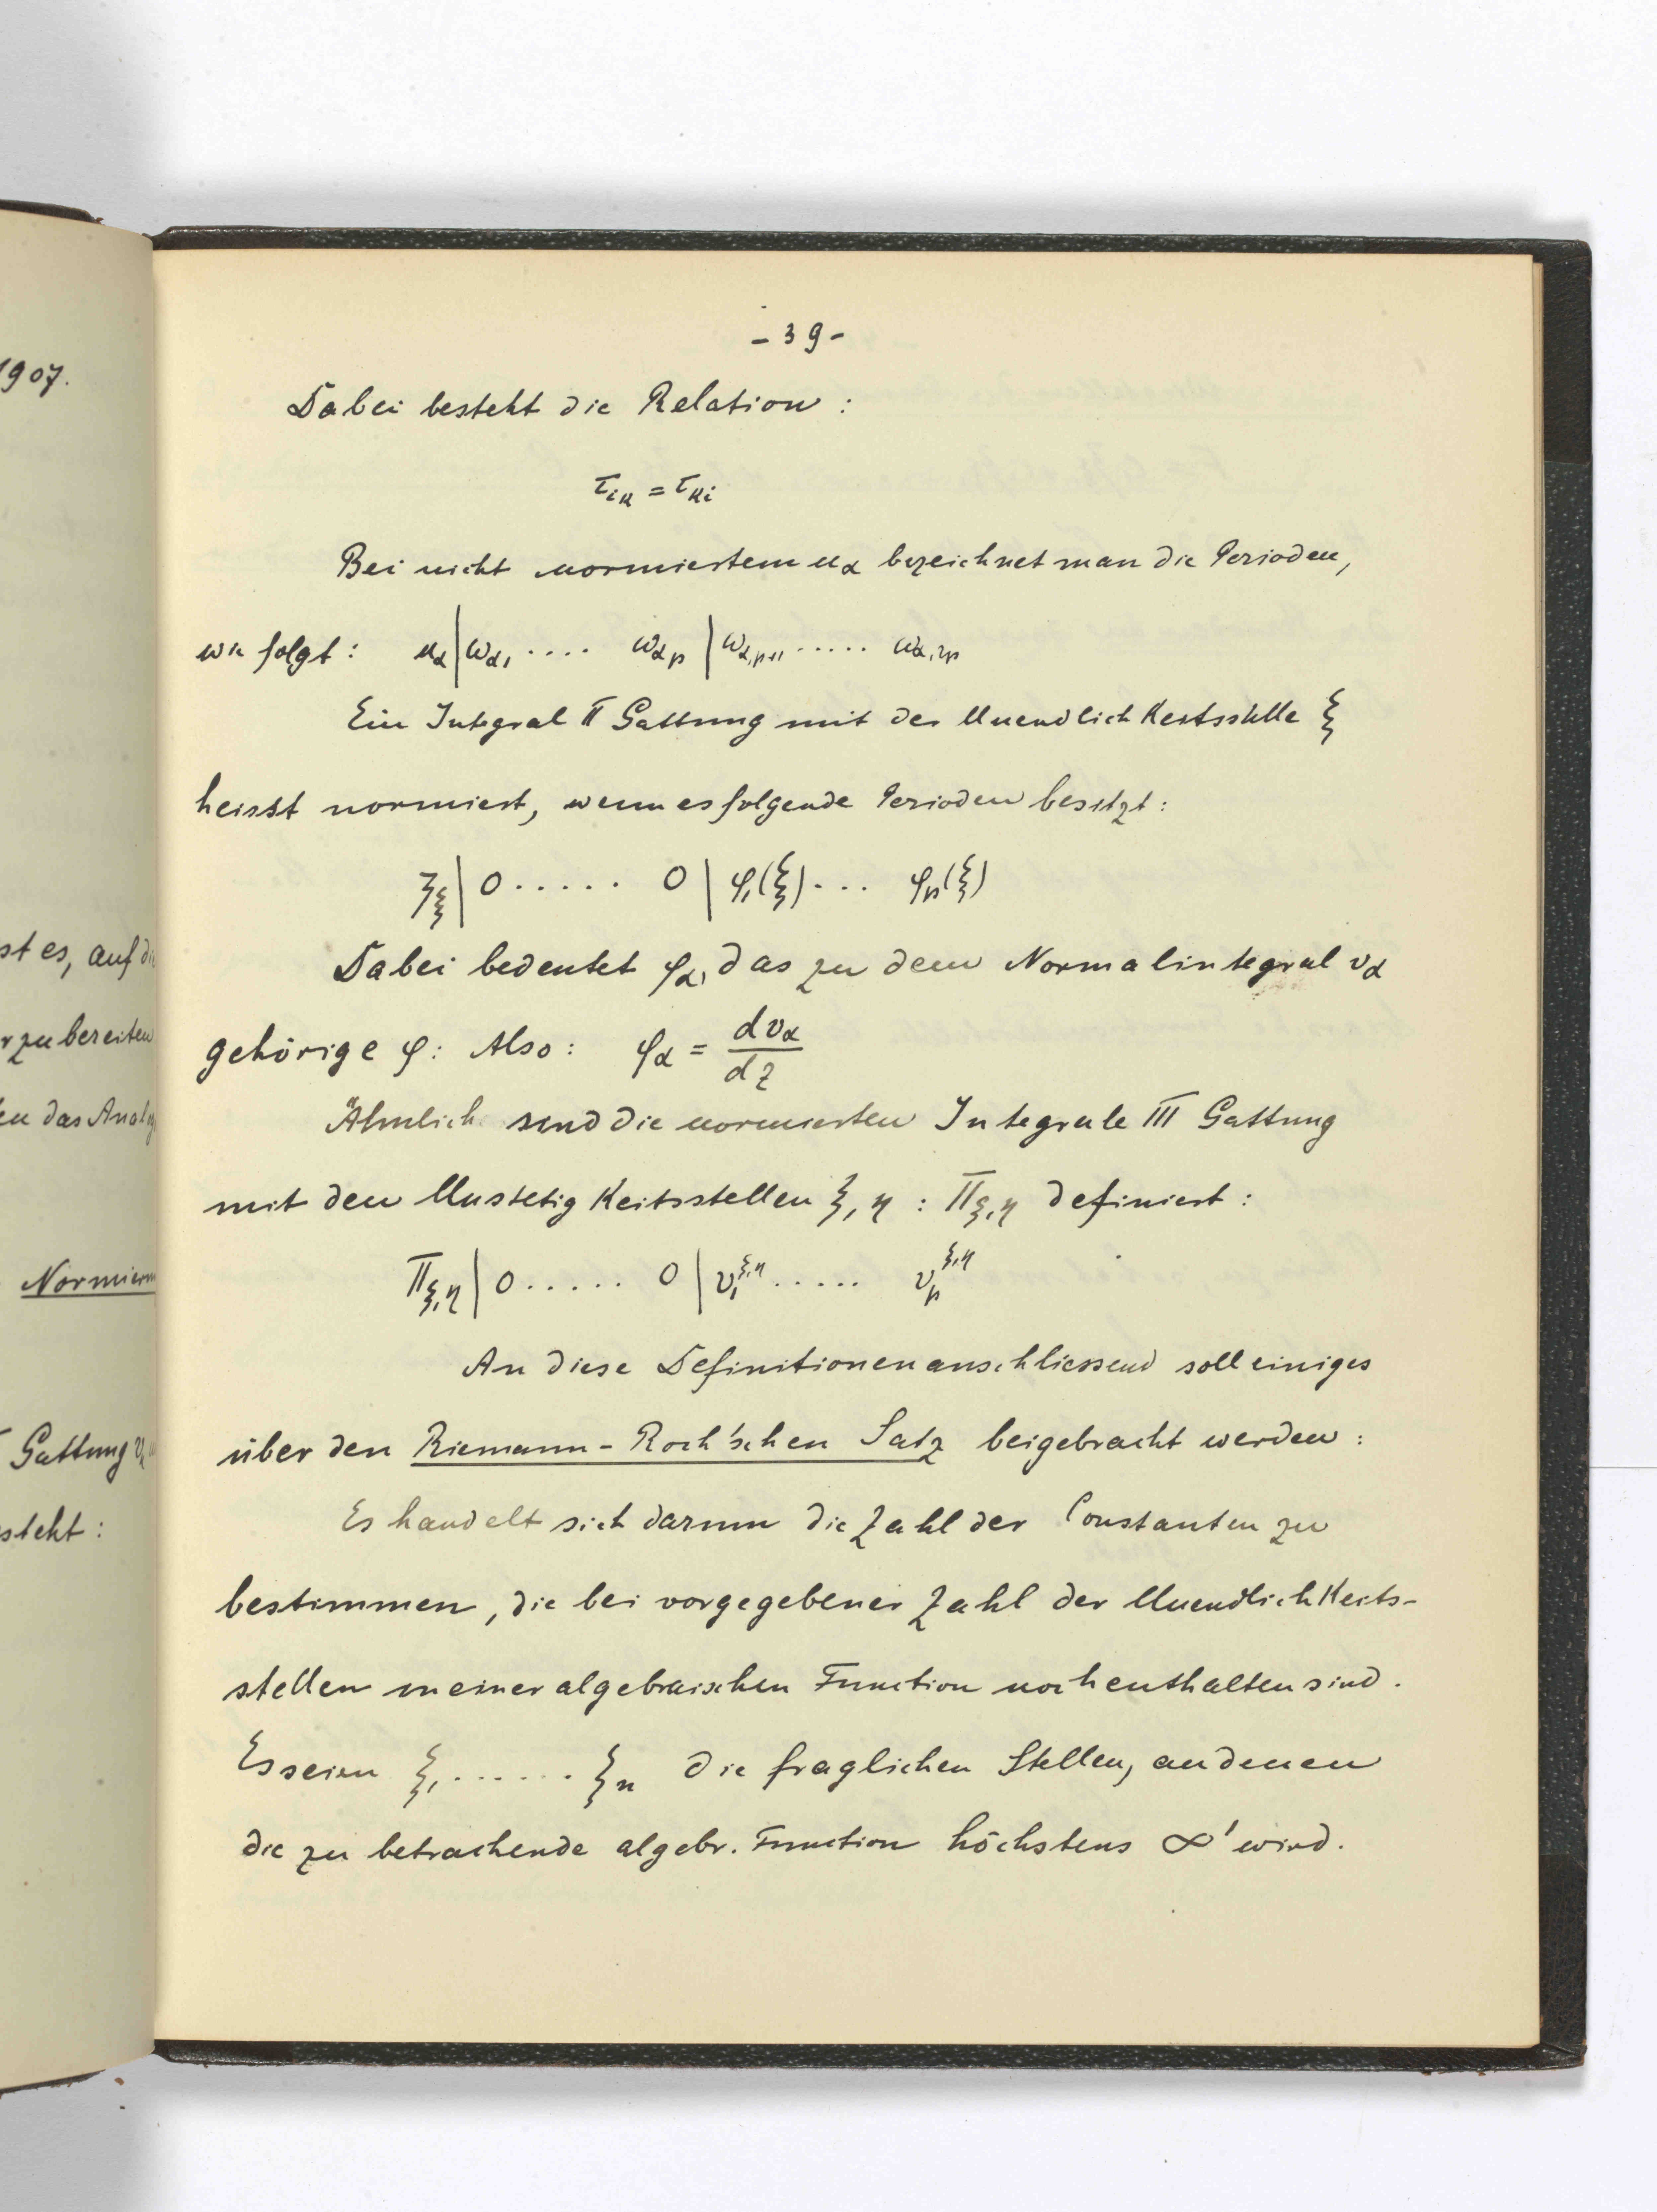 1907.
st es, auf die
zubereiten
das Analy
Normierun
Gattung v
steht:
- 39 -
Dabei besteht die Relation:
τ_{ik} = τ_{ki}
Bei nicht normiertem u_α bezeichnet man die Perioden,
wie folgt: u_α | ω_{α1} .... ω_{αp} | ω_{α,p+1} ..... ω_{α,2p}
Ein Integral II Gattung mit der Unendlichkeitsstelle ξ
heisst normiert, wenn es folgende Perioden besitzt:
ζ_ξ | 0 ..... 0 | φ_1(ξ) ... φ_p(ξ)
Dabei bedeutet φ_α, das zu dem Normalintegral v_α
gehörige φ: Also: φ_α = dv_α/dz
Ähnlich sind die normierten Integrale III Gattung
mit den Unstetigkeitsstellen ξ, η : Π_{ξ,η} definiert:
Π_{ξ,η} | 0 ..... 0 | v_1^{ξ,η} ..... v_p^{ξ,η}
An diese Definitionen anschliessend soll einiges
über den Riemann-Roch'schen Satz beigebracht werden:
Es handelt sich darum die Zahl der Constanten zu
bestimmen, die bei vorgegebener Zahl der Unendlichkeits-
stellen in einer algebraischen Function noch enthalten sind.
Es seien ξ_1 ...... ξ_n die fraglichen Stellen, an denen
die zu betrachende algebr. Function höchstens ∞^1 wird.